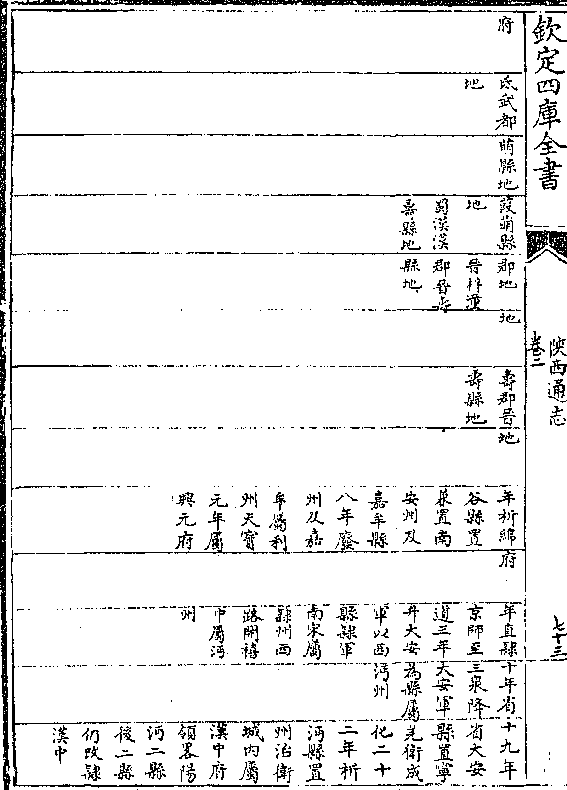 欽定四庫全書
陝西通志
七十三
府
氐武都
地
萌縣地
葭萌縣
地
蜀漢漢
壽縣地
郡地
晉梓潼
郡晉壽
縣地
地
壽郡晉
壽縣地
地
年析綿
谷縣置
置南
安州及
嘉牟縣
八年廢
州及嘉
牟屬利
州天寶
元年屬
興元府
府
年直隸
京師至
道三年
升大安
軍以西
縣隸軍
南宋屬
州西
路開禧
中屬沔
州
十年省
三泉降
大安軍
為縣屬
沔州
十九年
省大安
縣置寧
羌衛成
化二十
二年析
沔縣置
州治衛
城內屬
漢中府
領畧陽
沔二縣
後二縣
仍改隸
漢中